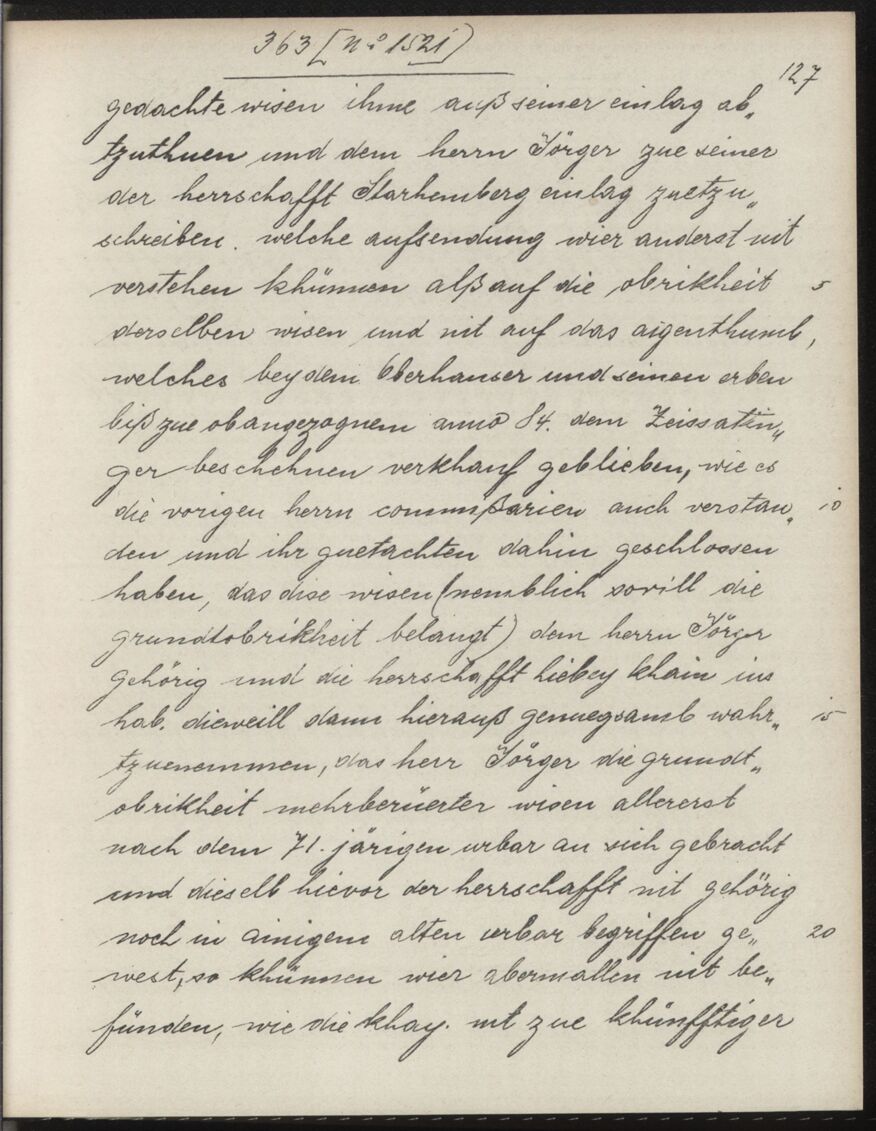 363 [nº 1521)
127
gedachte wisen ihme auß seiner einlag ab„
tzuthuen und dem herrn Jörger zue seiner
der herrschafft Starhemberg einlag zuetzu„
schreiben. welche aufsendung wier anderst nit
verstehen khünnen alß auf die obrikheit 5
derselben wisen und nit auf das aigenthumb,
welches bey dem Eberhauser und seinen erben
biß zue obangezognem anno 84. dem Zeissatin„
ger beschehnen verkhauf geblieben, wie es
die vorigen herrn commißarien auch verstan„ 10
den und ihr guetachten dahin geschlossen
haben, das dise wisen (nemblich sovill die
grundtobrikheit belangt) dem herrn Jörger
gehörig und die herrschafft hiebey khain ius
hab. dieweill dann hierauß genuegsamb wahr„ 15
tzuenemmen, das herr Jörger die grundt„
obrikheit mehrberüerter wisen allererst
nach dem 71. järigen urbar an sich gebracht
und dieselb hievor der herrschafft nit gehörig
noch in ainigem alten urbar begriffen ge„ 20
west, so khünnen wier abermallen nit be„
fünden, wie die khay. mt zue khünfftiger